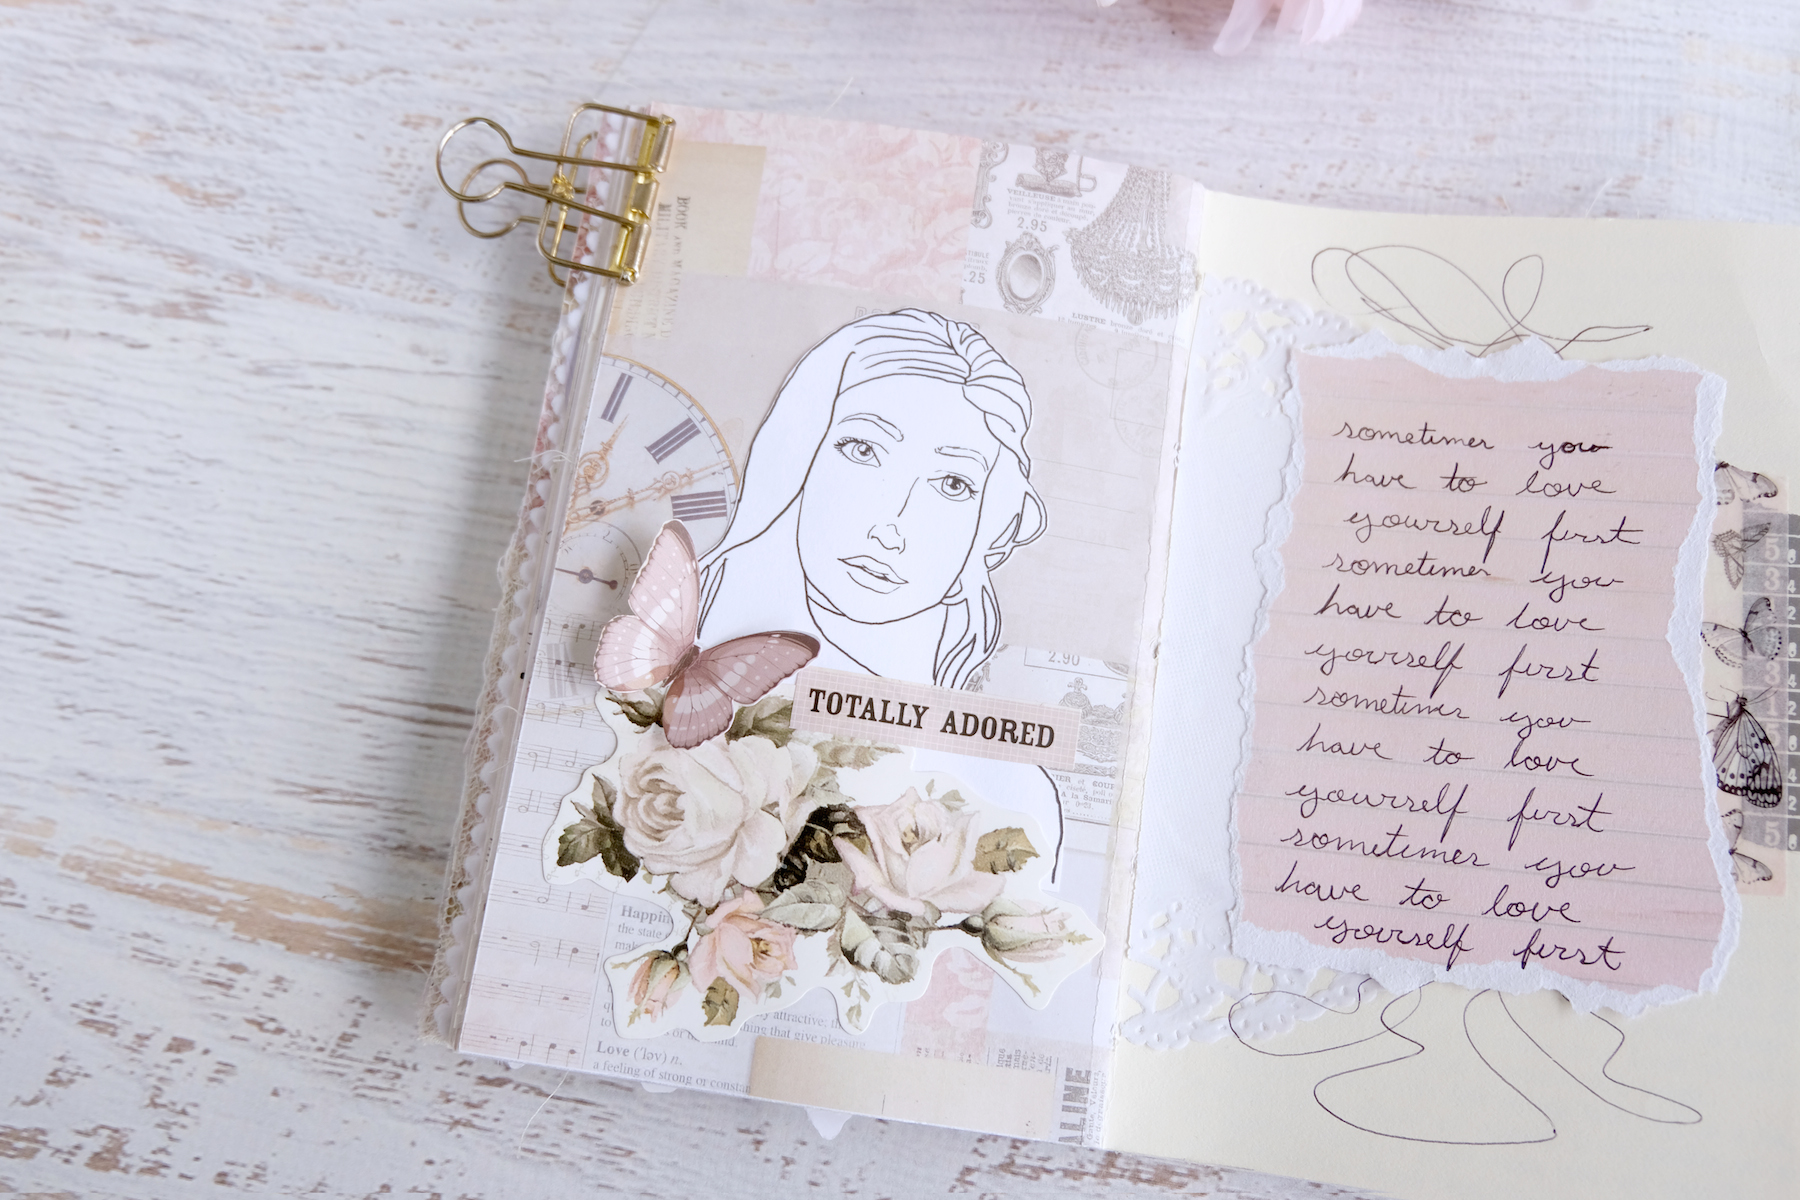 BOOK AND
VEILLEUSE
2.95
.25
LUSTRE
2.90
TOTALLY ADORED
Happin
the state
mak
attractive;
thing that give pleasure
Love ('lǝv) n.
a feeling of strong or constan
ALINE
sometimes you
have to love
yourself first
sometimes you
have to love
yourself first
sometimes you
have to love
yourself first
sometimes you
have to love
yourself first
5
3
2
3
1
5
4
2
5